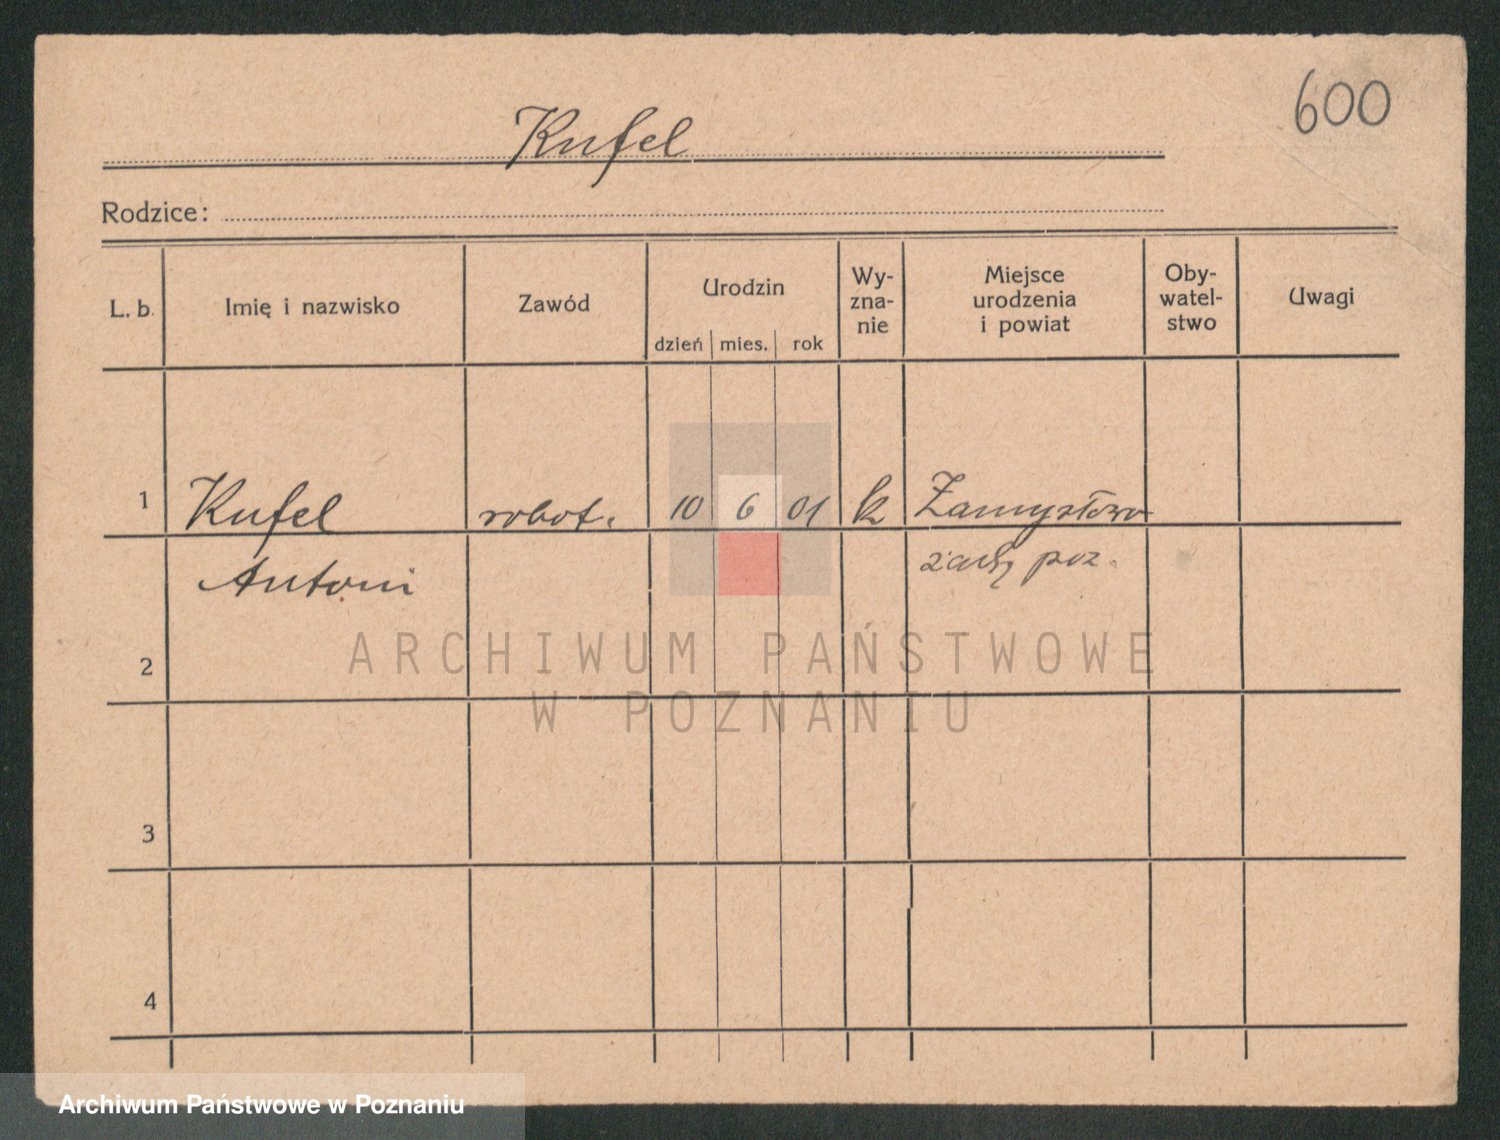 600
Kufel
Rodzice:
L. b. Imię i nazwisko Zawód Urodzin dzień mies. rok Wy-zna-nie Miejsce urodzenia i powiat Oby-watel-stwo Uwagi
1 Kufel robot. 10 6 01 k Zamysłowo
Antoni poz.
2
ARCHIWUM PAŃSTWOWE
W POZNANIU
3
4
Archiwum Państwowe w Poznaniu